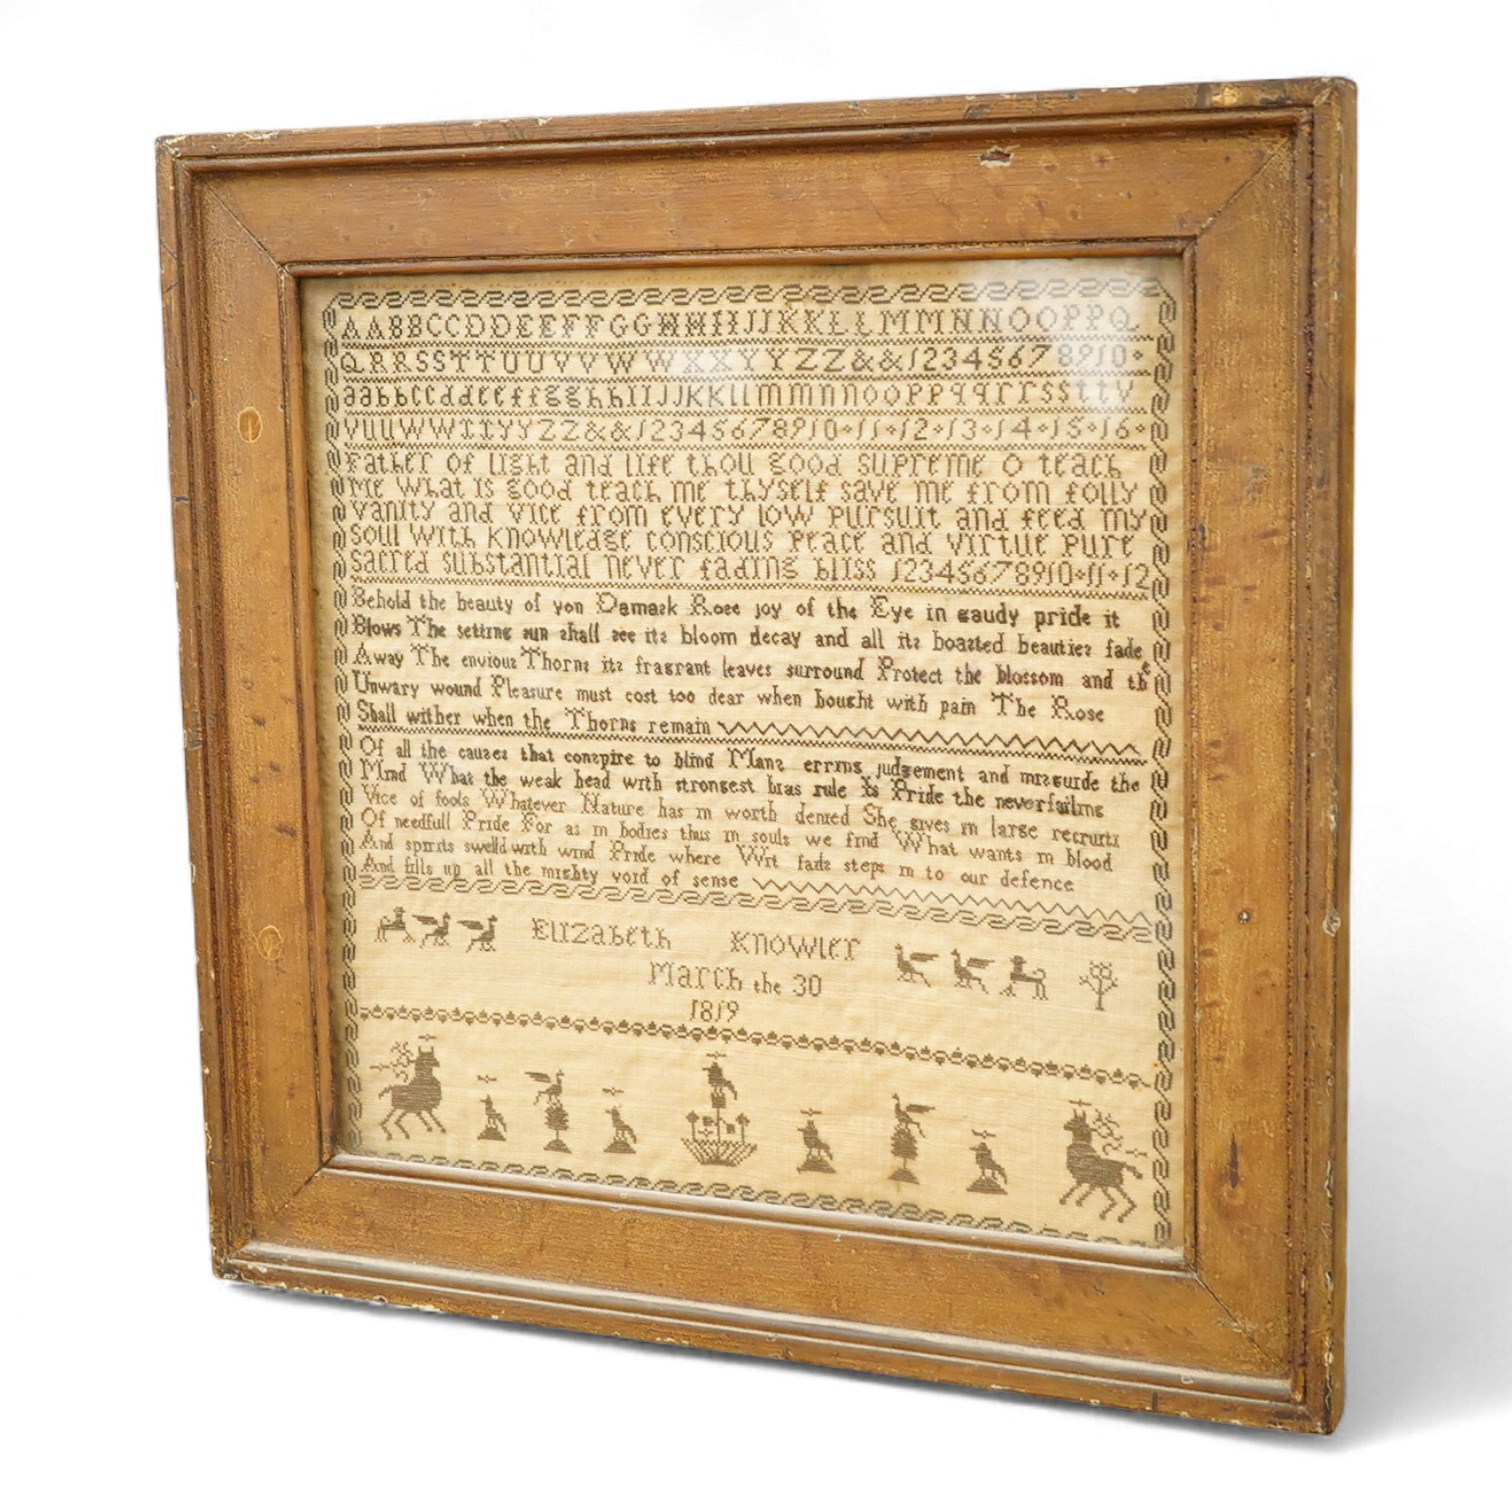 AABBCCDDEEFFGGHHIIJJKKLLMMNNOOPPQ
QRRSSTTUUVVWWXXYYZZ&&12345678910
aabbccddeeffgghhIIJJKKllmmnnooppqqrrssttv
vuuwwxxyyzz&&12345678910·11·12·13·14·15·16·
Father of light and life thou good supreme o teach
me what is good teach me thyself save me from folly
vanity and vice from every low pursuit and feed my
soul with knowledge conscious peace and virtue pure
sacred substantial never fading bliss 12345678910·11·12
Behold the beauty of yon Damask Rose joy of the Eye in gaudy pride it
Blows The setting sun shall see its bloom decay and all its boasted beauties fade
Away The envious Thorns its fragrant leaves surround Protect the blossom and the
Unwary wound Pleasure must cost too dear when bought with pain The Rose
Shall wither when the Thorns remain
Of all the causes that conspire to blind Mans erring judgement and misguide the
Mind What the weak head with strongest bias rule Is Pride the neverfailing
Vice of fools Whatever Nature has in worth denied She gives in large recruits
Of needfull Pride For as in bodies thus in souls we find What wants in blood
And spirits swelld with wind Pride where Wit fails steps in to our defence
And fills up all the mighty void of sense
Elizabeth Knowler
March the 30
1819